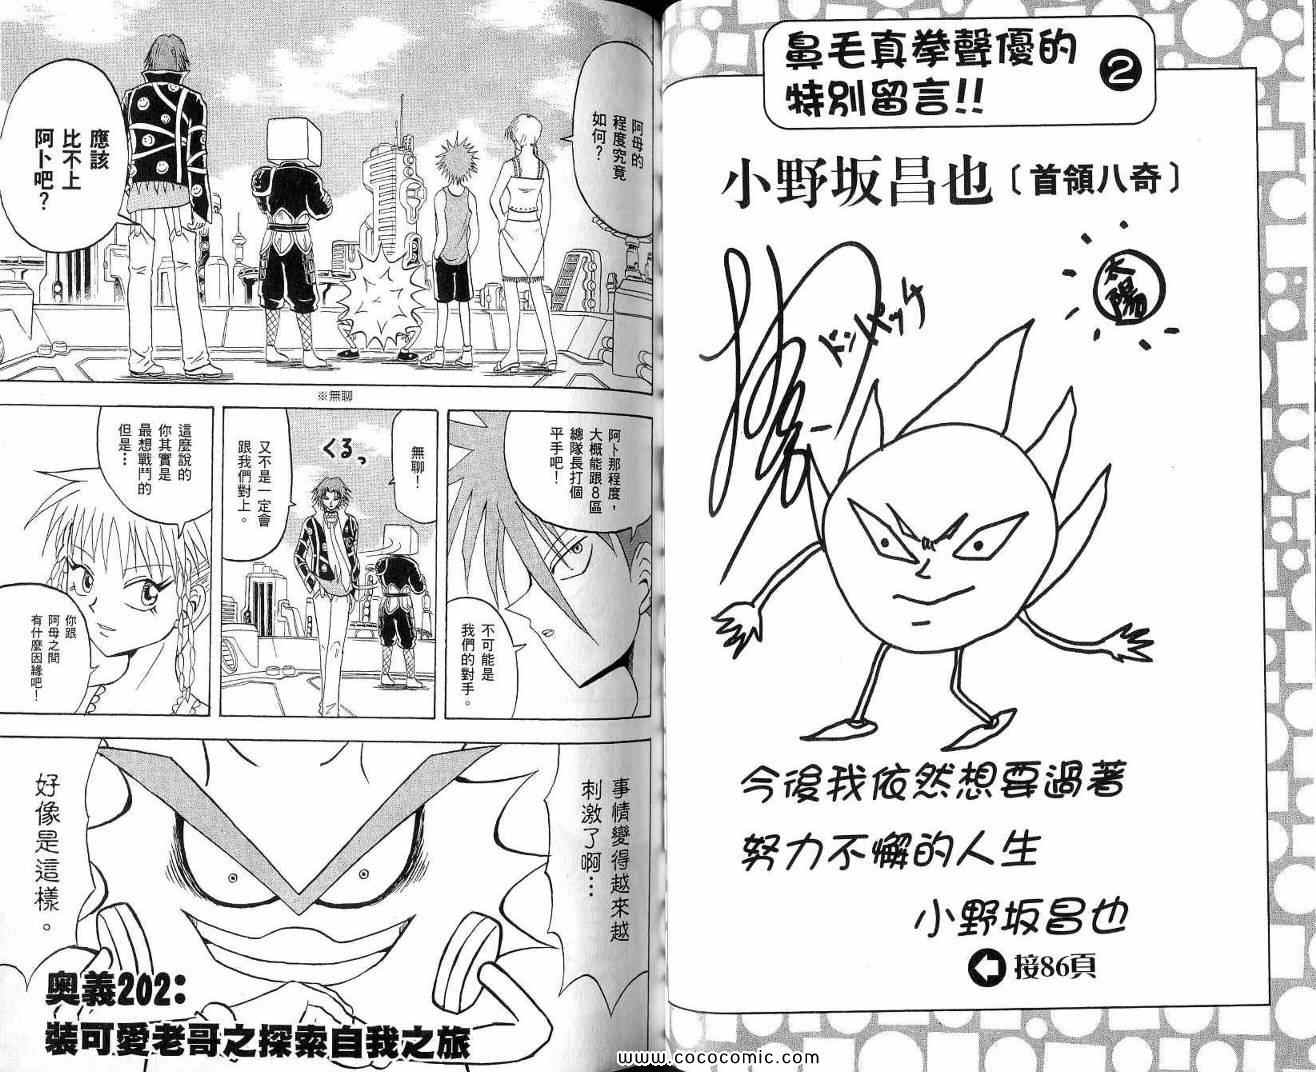 鼻毛真拳聲優的
特別留言!!
2
小野坂昌也〔首領八奇〕
太陽
ドンパッチ
今後我依然想要過著
努力不懈的人生
小野坂昌也
接86頁
阿母的
程度究竟
如何？
應該
比不上
阿卜吧？
※無聊
阿卜那程度，
大概能跟8區
總隊長打個
平手吧！
不可能是
我們的對手。
無聊！
くるっ
又不是一定會
跟我們對上。
這麼說的
你其實是
最想戰鬥的
但是…
你跟
阿母之間
有什麼因緣吧！
事情變得越來越
刺激了啊…
好像是這樣。
奧義202：
裝可愛老哥之探索自我之旅
www.cococomic.com